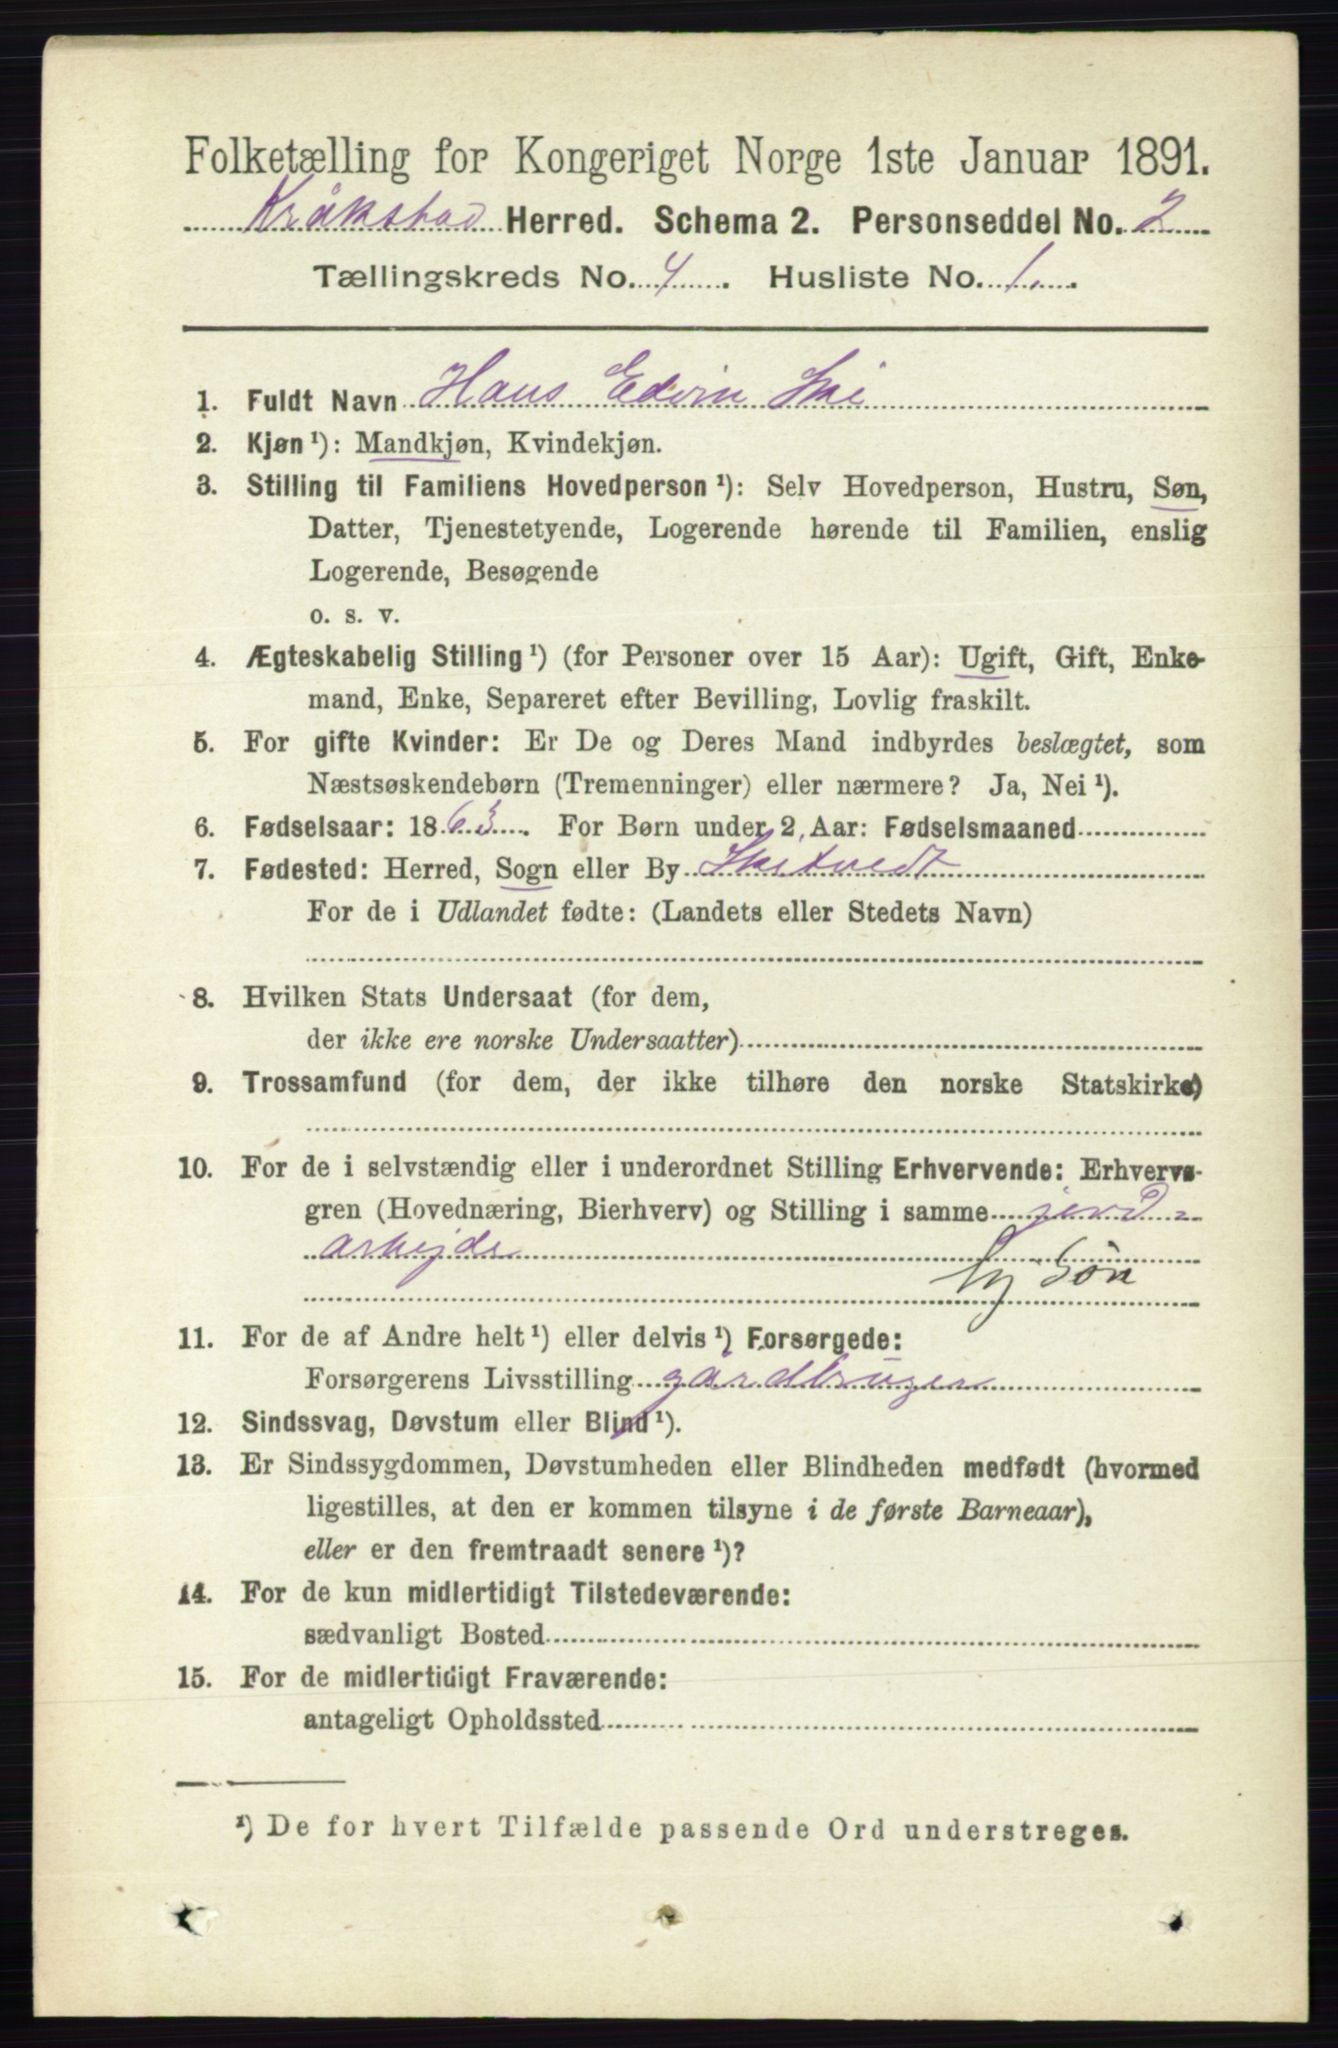 Folketælling for Kongeriget Norge 1ste Januar 1891.
Kråkstad Herred. Schema 2. Personseddel No. 2
Tællingskreds No. 4. Husliste No. 1.
1. Fuldt Navn Hans Edvin Ski
2. Kjøn ¹): Mandkjøn, Kvindekjøn.
3. Stilling til Familiens Hovedperson ¹): Selv Hovedperson, Hustru, Søn,
Datter, Tjenestetyende, Logerende hørende til Familien, enslig
Logerende, Besøgende
o. s. v.
4. Ægteskabelig Stilling ¹) (for Personer over 15 Aar): Ugift, Gift, Enke-
mand, Enke, Separeret efter Bevilling, Lovlig fraskilt.
5. For gifte Kvinder: Er De og Deres Mand indbyrdes beslægtet, som
Næstsøskendebørn (Tremenninger) eller nærmere? Ja, Nei ¹).
6. Fødselsaar: 1863. For Børn under 2 Aar: Fødselsmaaned
7. Fødested: Herred, Sogn eller By Skitvedt
For de i Udlandet fødte: (Landets eller Stedets Navn)
8. Hvilken Stats Undersaat (for dem,
der ikke ere norske Undersaatter)
9. Trossamfund (for dem, der ikke tilhøre den norske Statskirke)
10. For de i selvstændig eller i underordnet Stilling Erhvervende: Erhvervs-
gren (Hovednæring, Bierhverv) og Stilling i samme jord-
arbejde
Søn
11. For de af Andre helt ¹) eller delvis ¹) Forsørgede:
Forsørgerens Livsstilling gardbruger
12. Sindssvag, Døvstum eller Blind ¹).
13. Er Sindssygdommen, Døvstumheden eller Blindheden medfødt (hvormed
ligestilles, at den er kommen tilsyne i de første Barneaar),
eller er den fremtraadt senere ¹)?
14. For de kun midlertidigt Tilstedeværende:
sædvanligt Bosted
15. For de midlertidigt Fraværende:
antageligt Opholdssted
¹) De for hvert Tilfælde passende Ord understreges.